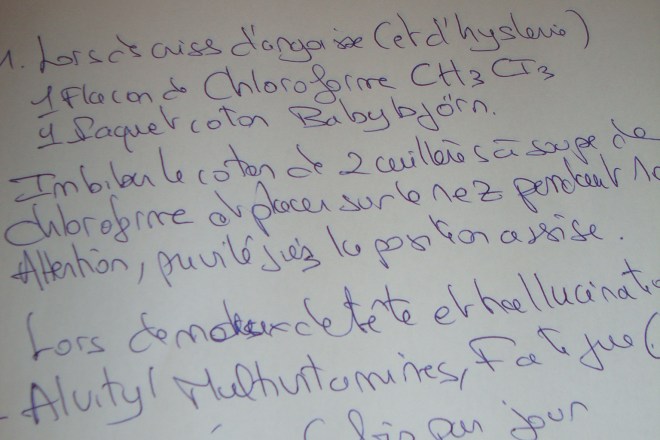 1. Lors de criss d'angoisse (et d'hysterie)
1 Flacon de Chloroforme CH3 CT3
1 Paquet coton Babybjörn.
Imbiber le coton de 2 cuillères à soupe de
chloroforme et placer sur le nez pendant 10
Attention, privilégiez la position assise.
Lors de maux de tête et hallucinatio
- Alvityl Multivitamines, Fatigue (
fois par jour